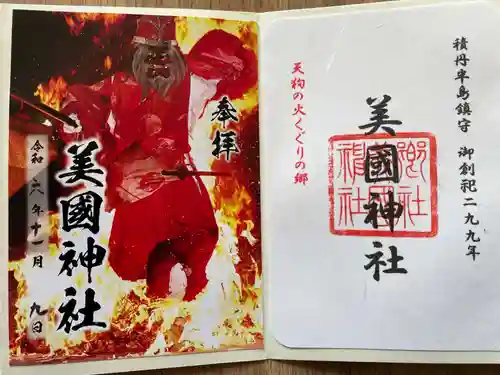 奉拝
美國神社
令和六年十一月九日
積丹半島鎮守 御創祀二九九年
美國神社
郷社美国神社
天狗の火くぐりの郷